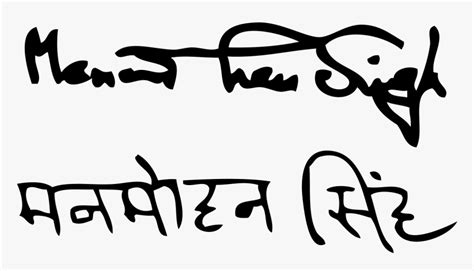 Manmohan Singh
मनमोहन सिंह